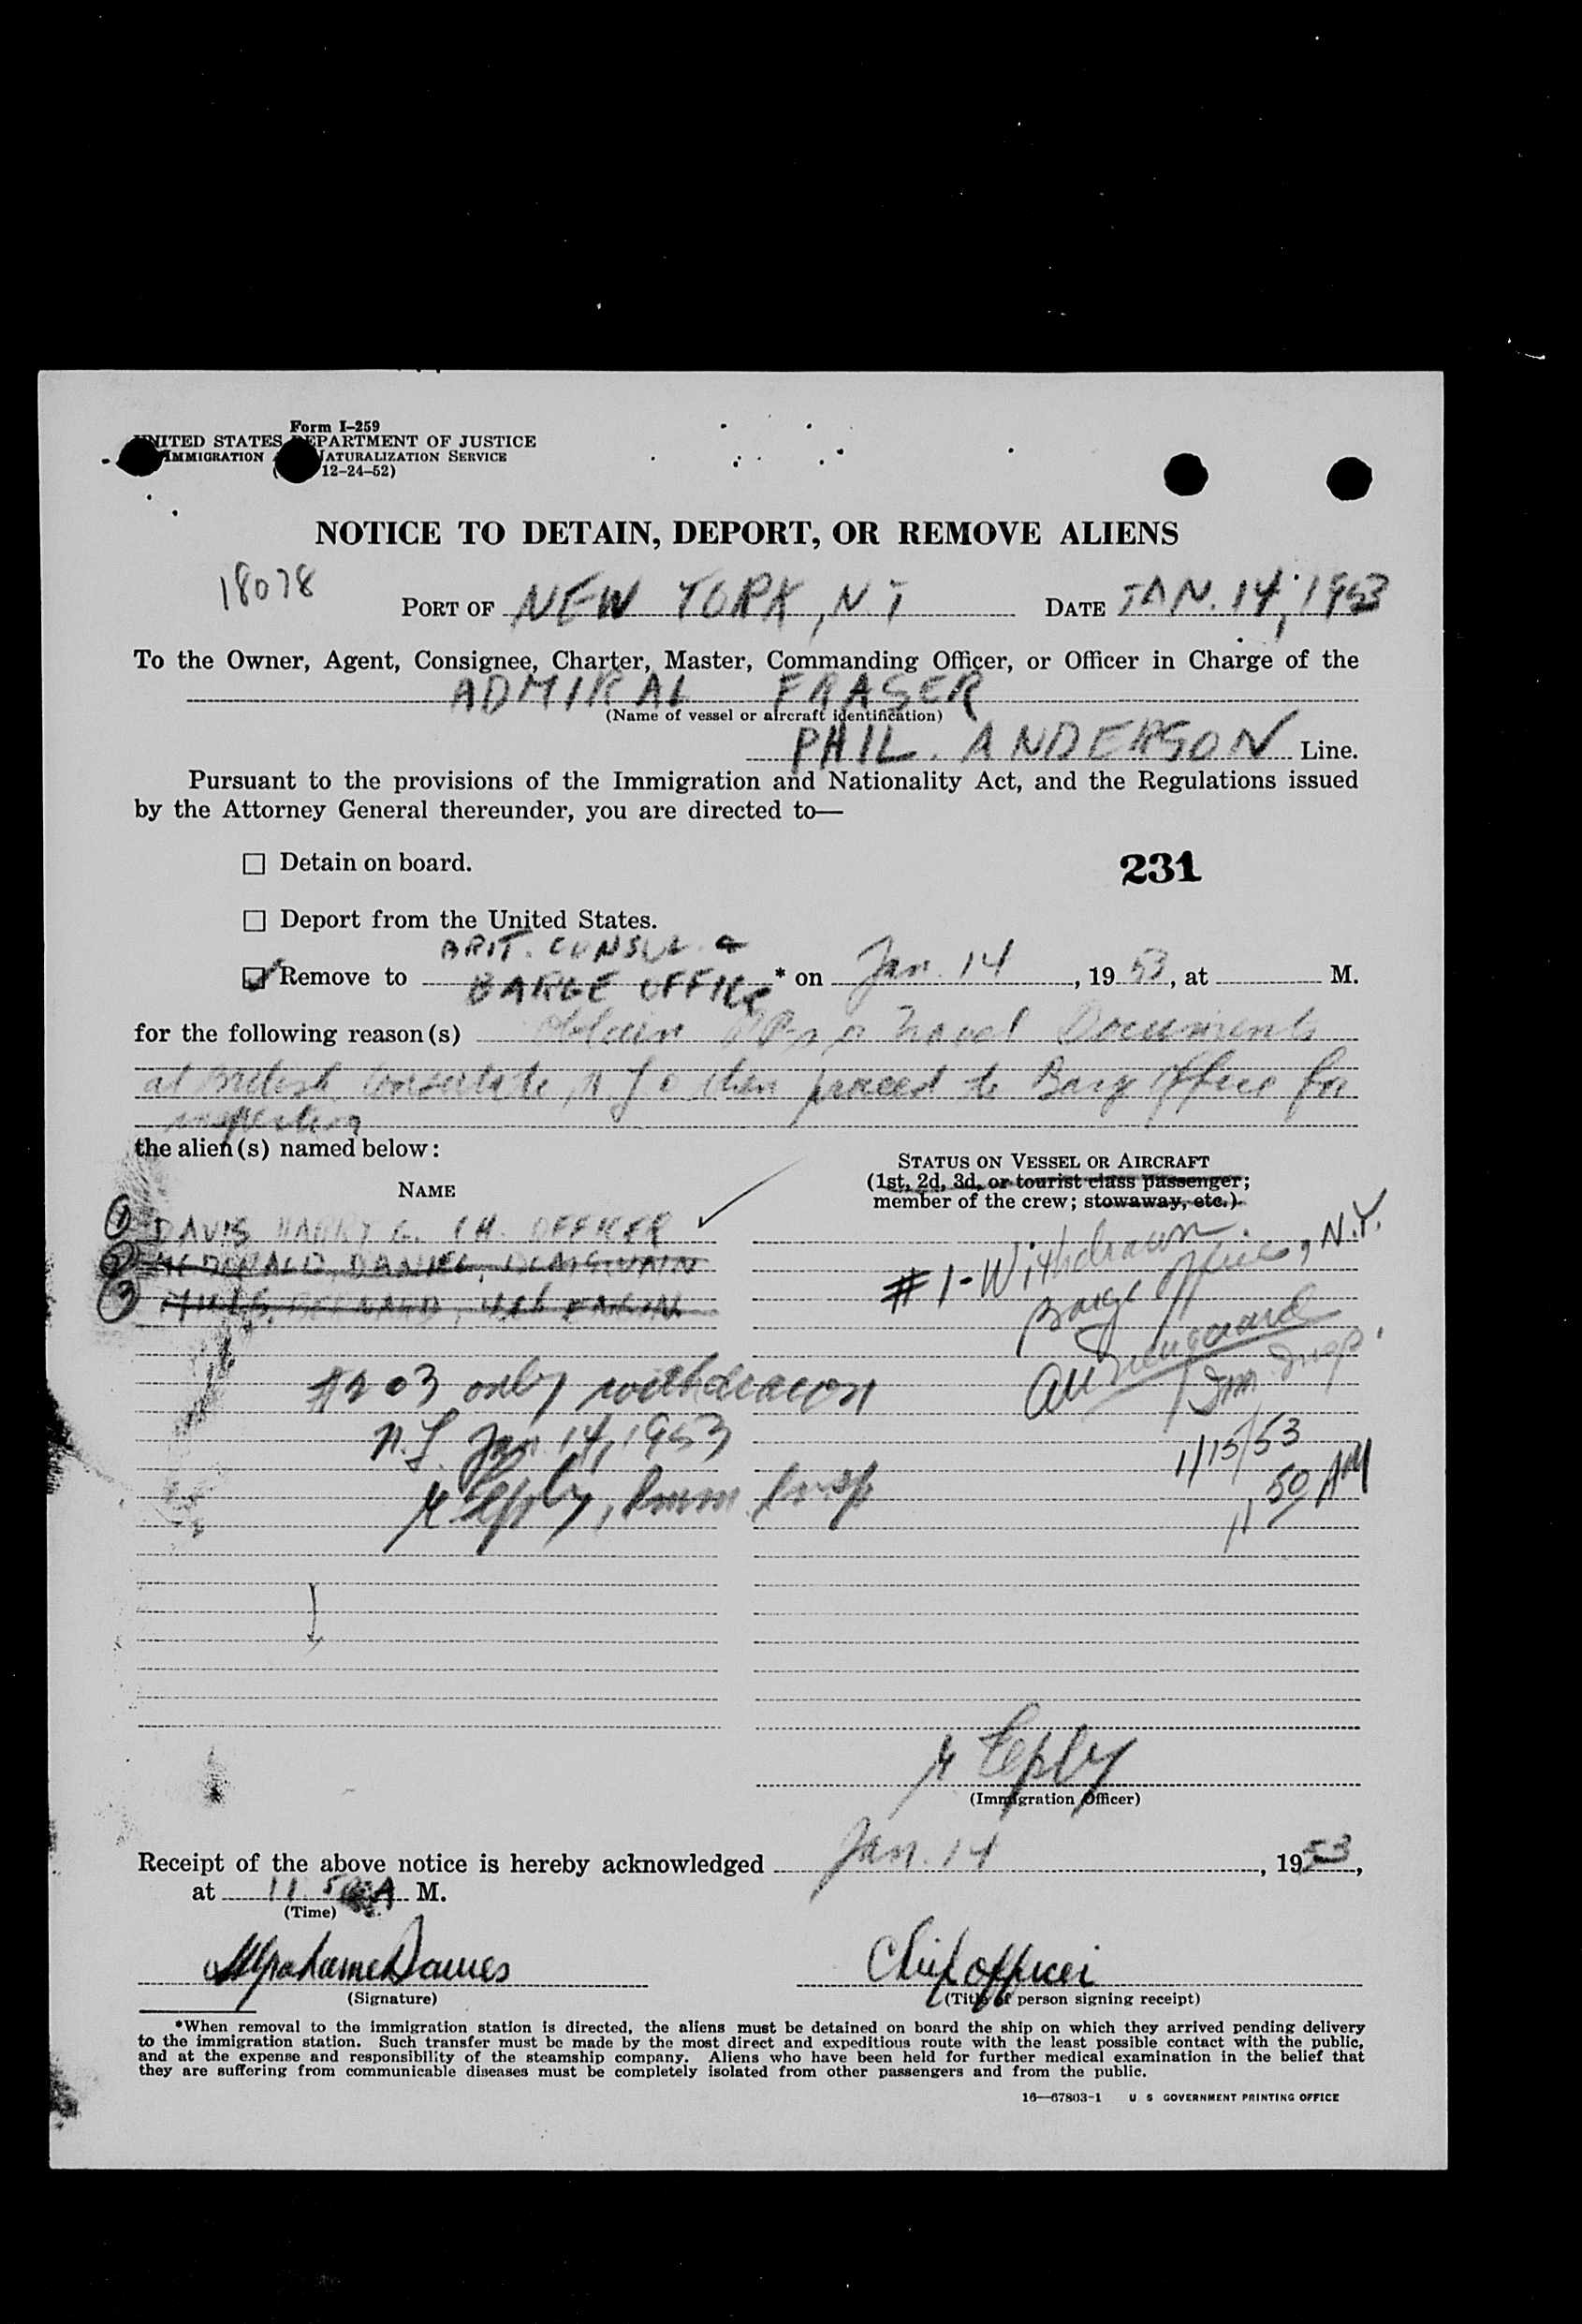 Form I-259
UNITED STATES DEPARTMENT OF JUSTICE
IMMIGRATION NATURALIZATION SERVICE
( 12-24-52)
NOTICE TO DETAIN, DEPORT, OR REMOVE ALIENS
18078
PORT OF NEW YORK, N.Y DATE JAN. 14, 1953
To the Owner, Agent, Consignee, Charter, Master, Commanding Officer, or Officer in Charge of the
ADMIRAL FRASER
(Name of vessel or aircraft identification)
PHIL. ANDERSON Line.
Pursuant to the provisions of the Immigration and Nationality Act, and the Regulations issued
by the Attorney General thereunder, you are directed to—
☐ Detain on board.
231
☐ Deport from the United States.
BRIT. CONSUL &
☑ Remove to BARGE OFFICE * on Jan. 14, 1953, at M.
for the following reason(s) obtain Travel Documents
at British Consulate, N.Y. & then proceed to Barge Office for
inspection
the alien(s) named below:
STATUS ON VESSEL OR AIRCRAFT
(1st, 2d, 3d, or tourist class passenger;
NAME
member of the crew; stowaway, etc.)
① DAVIS HARRY G. CH. OFFICER
② MCDONALD, DANIEL,
③ BERNARD,
#1-Withdrawn
Barge Office, N.Y.
Imm. Insp.
1/15/53
11 50 AM
#2 & 3 only withdrawn
N.Y. Jan 14, 1953
Imm Insp
(Immigration Officer)
Receipt of the above notice is hereby acknowledged Jan. 14, 1953,
at 11.50 A M.
(Time)
Chief officer
(Signature)
(Title of person signing receipt)
*When removal to the immigration station is directed, the aliens must be detained on board the ship on which they arrived pending delivery
to the immigration station. Such transfer must be made by the most direct and expeditious route with the least possible contact with the public,
and at the expense and responsibility of the steamship company. Aliens who have been held for further medical examination in the belief that
they are suffering from communicable diseases must be completely isolated from other passengers and from the public.
16—67803-1 U S GOVERNMENT PRINTING OFFICE